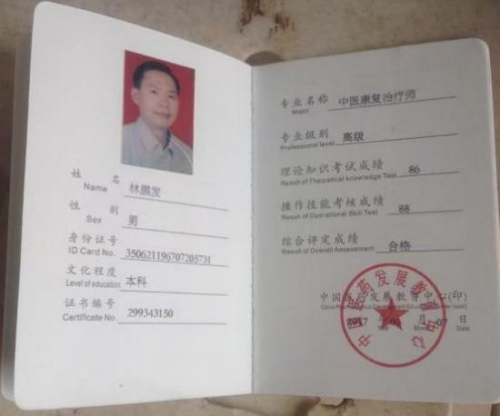 姓 名 林鹏发
Name
性 别 男
Sex
身份证号
ID Card No. 350621196707205731
文化程度 本科
Level of education
证书编号 299343150
Certificate No.
专业名称 中医康复治疗师
Major
专业级别 高级
Professional level
理论知识考试成绩 86
Result of Theoretical knowledge Test
操作技能考核成绩 88
Result of Operational Skill Test
综合评定成绩 合格
Result of Overall Assessment
中国医药发展教育中心(印)
年 月 07 日
Date
中国医药发展教育中心